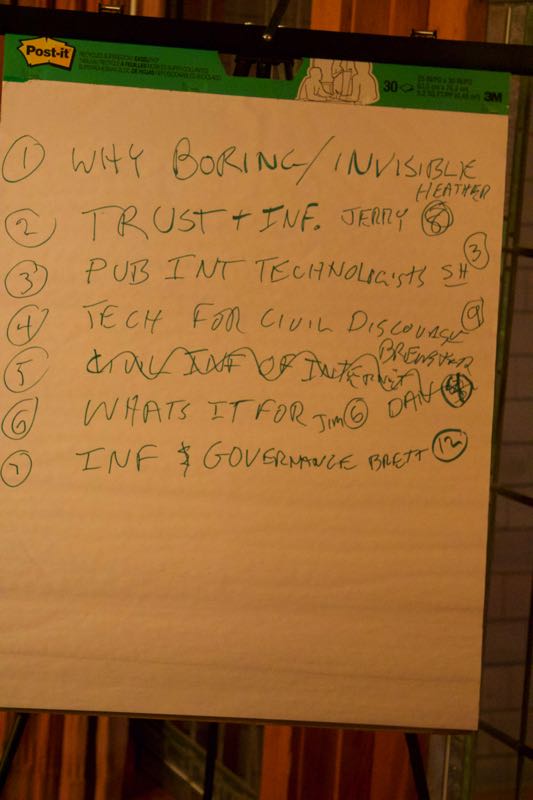 Post-it
30
3M
① WHY BORING/INVISIBLE
HEATHER
② TRUST + INF. JERRY ⑧
③ PUB INT TECHNOLOGISTS SH ③
④ TECH FOR CIVIL DISCOURSE ⑨
BREWSTER
⑤ INF OF INTERNET DAN
⑥ WHATS IT FOR Jim ⑥
⑦ INF & GOVERNANCE BRETT ⑫